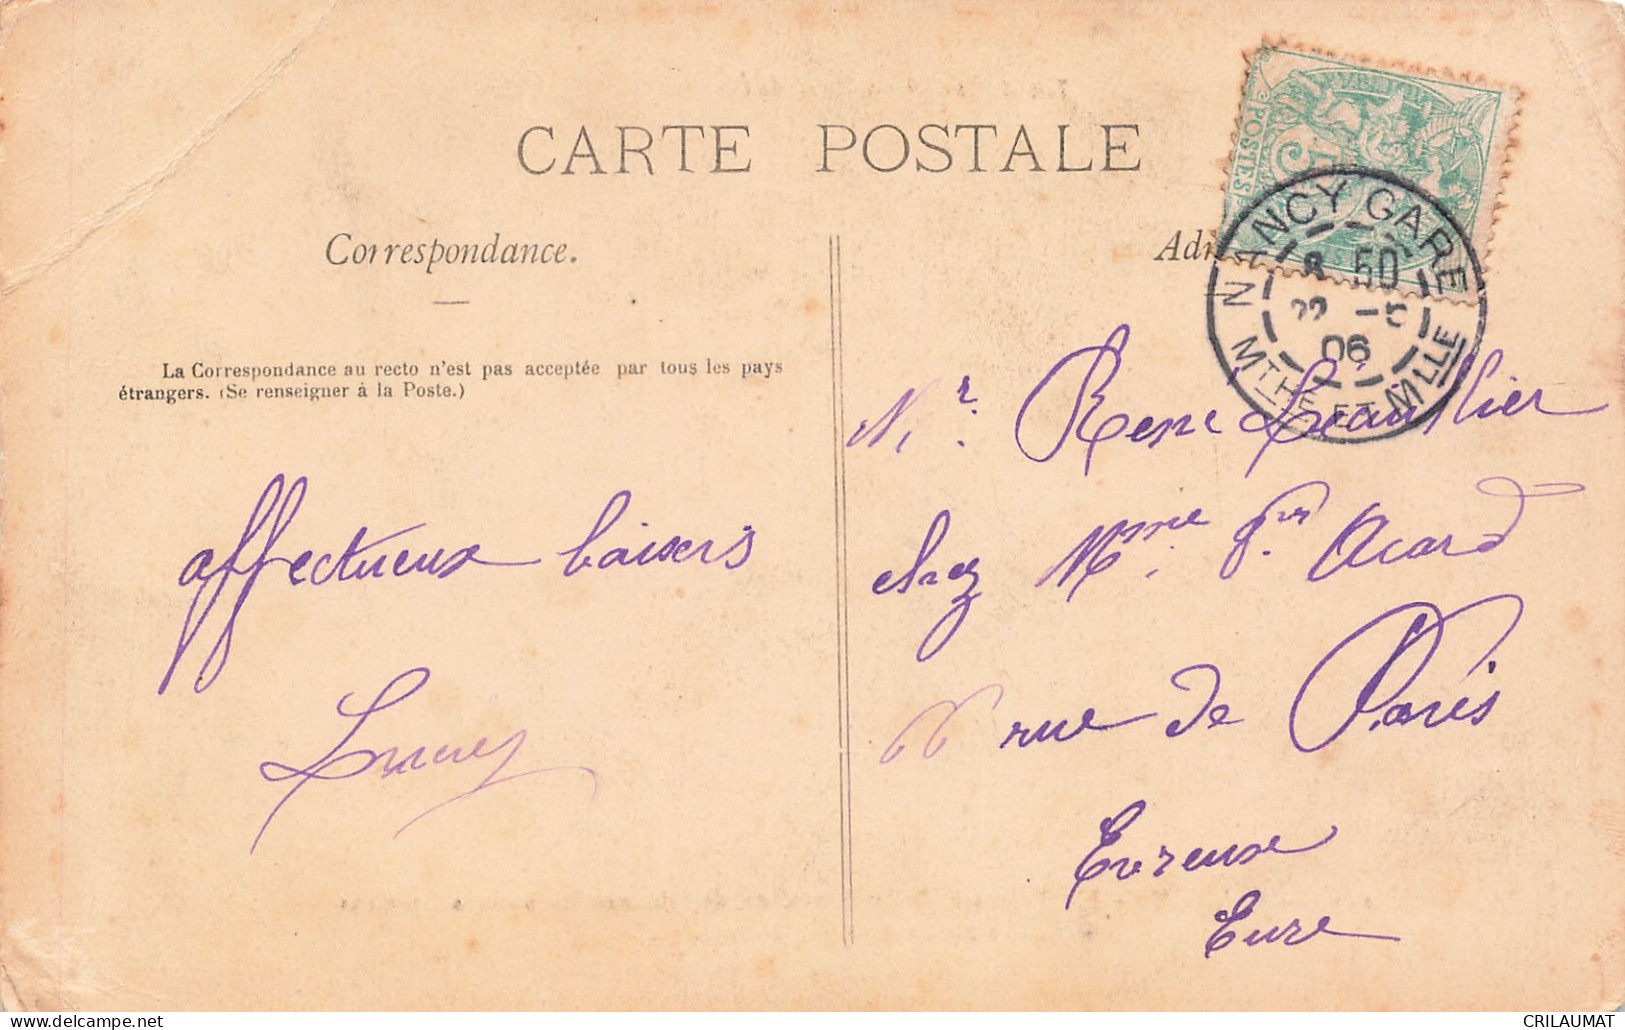 CARTE POSTALE
Correspondance.
La Correspondance au recto n'est pas acceptée par tous les pays
étrangers. (Se renseigner à la Poste.)
affectueux baisers
Adr
POSTES
5
NANCY GARE
8 50
22 -5
06
MTHE ET MLLE
Mr. René
chez Mme Acard
66 rue de Paris
Evreux
Eure
delcampe.net
CRILAUMAT